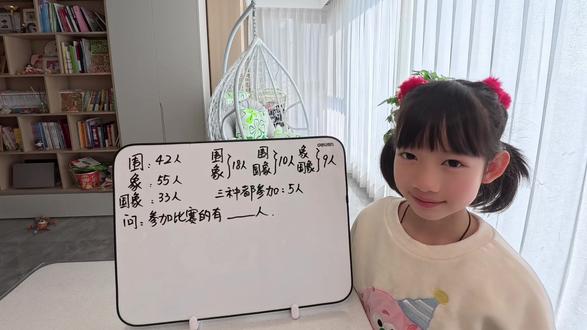 deli得力
围：42人 围象}18人 围国象}10人 象国象}9人
象：55人
国象：33人 三种都参加：5人
问：参加比赛的有____人.